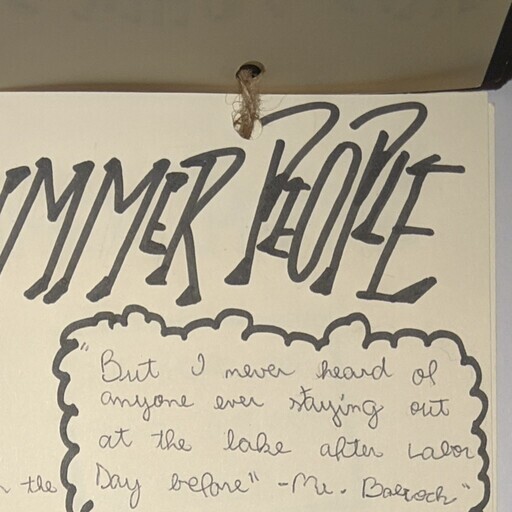 UMMER PEOPLE
"But I never heard of
anyone ever staying out
at the lake after Labor
the Day before" -Mr. Babcock"